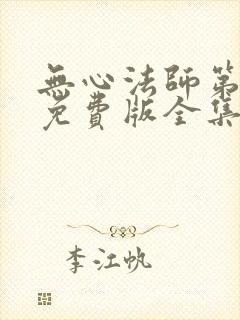 無心法師第
免費版全集
李江帆